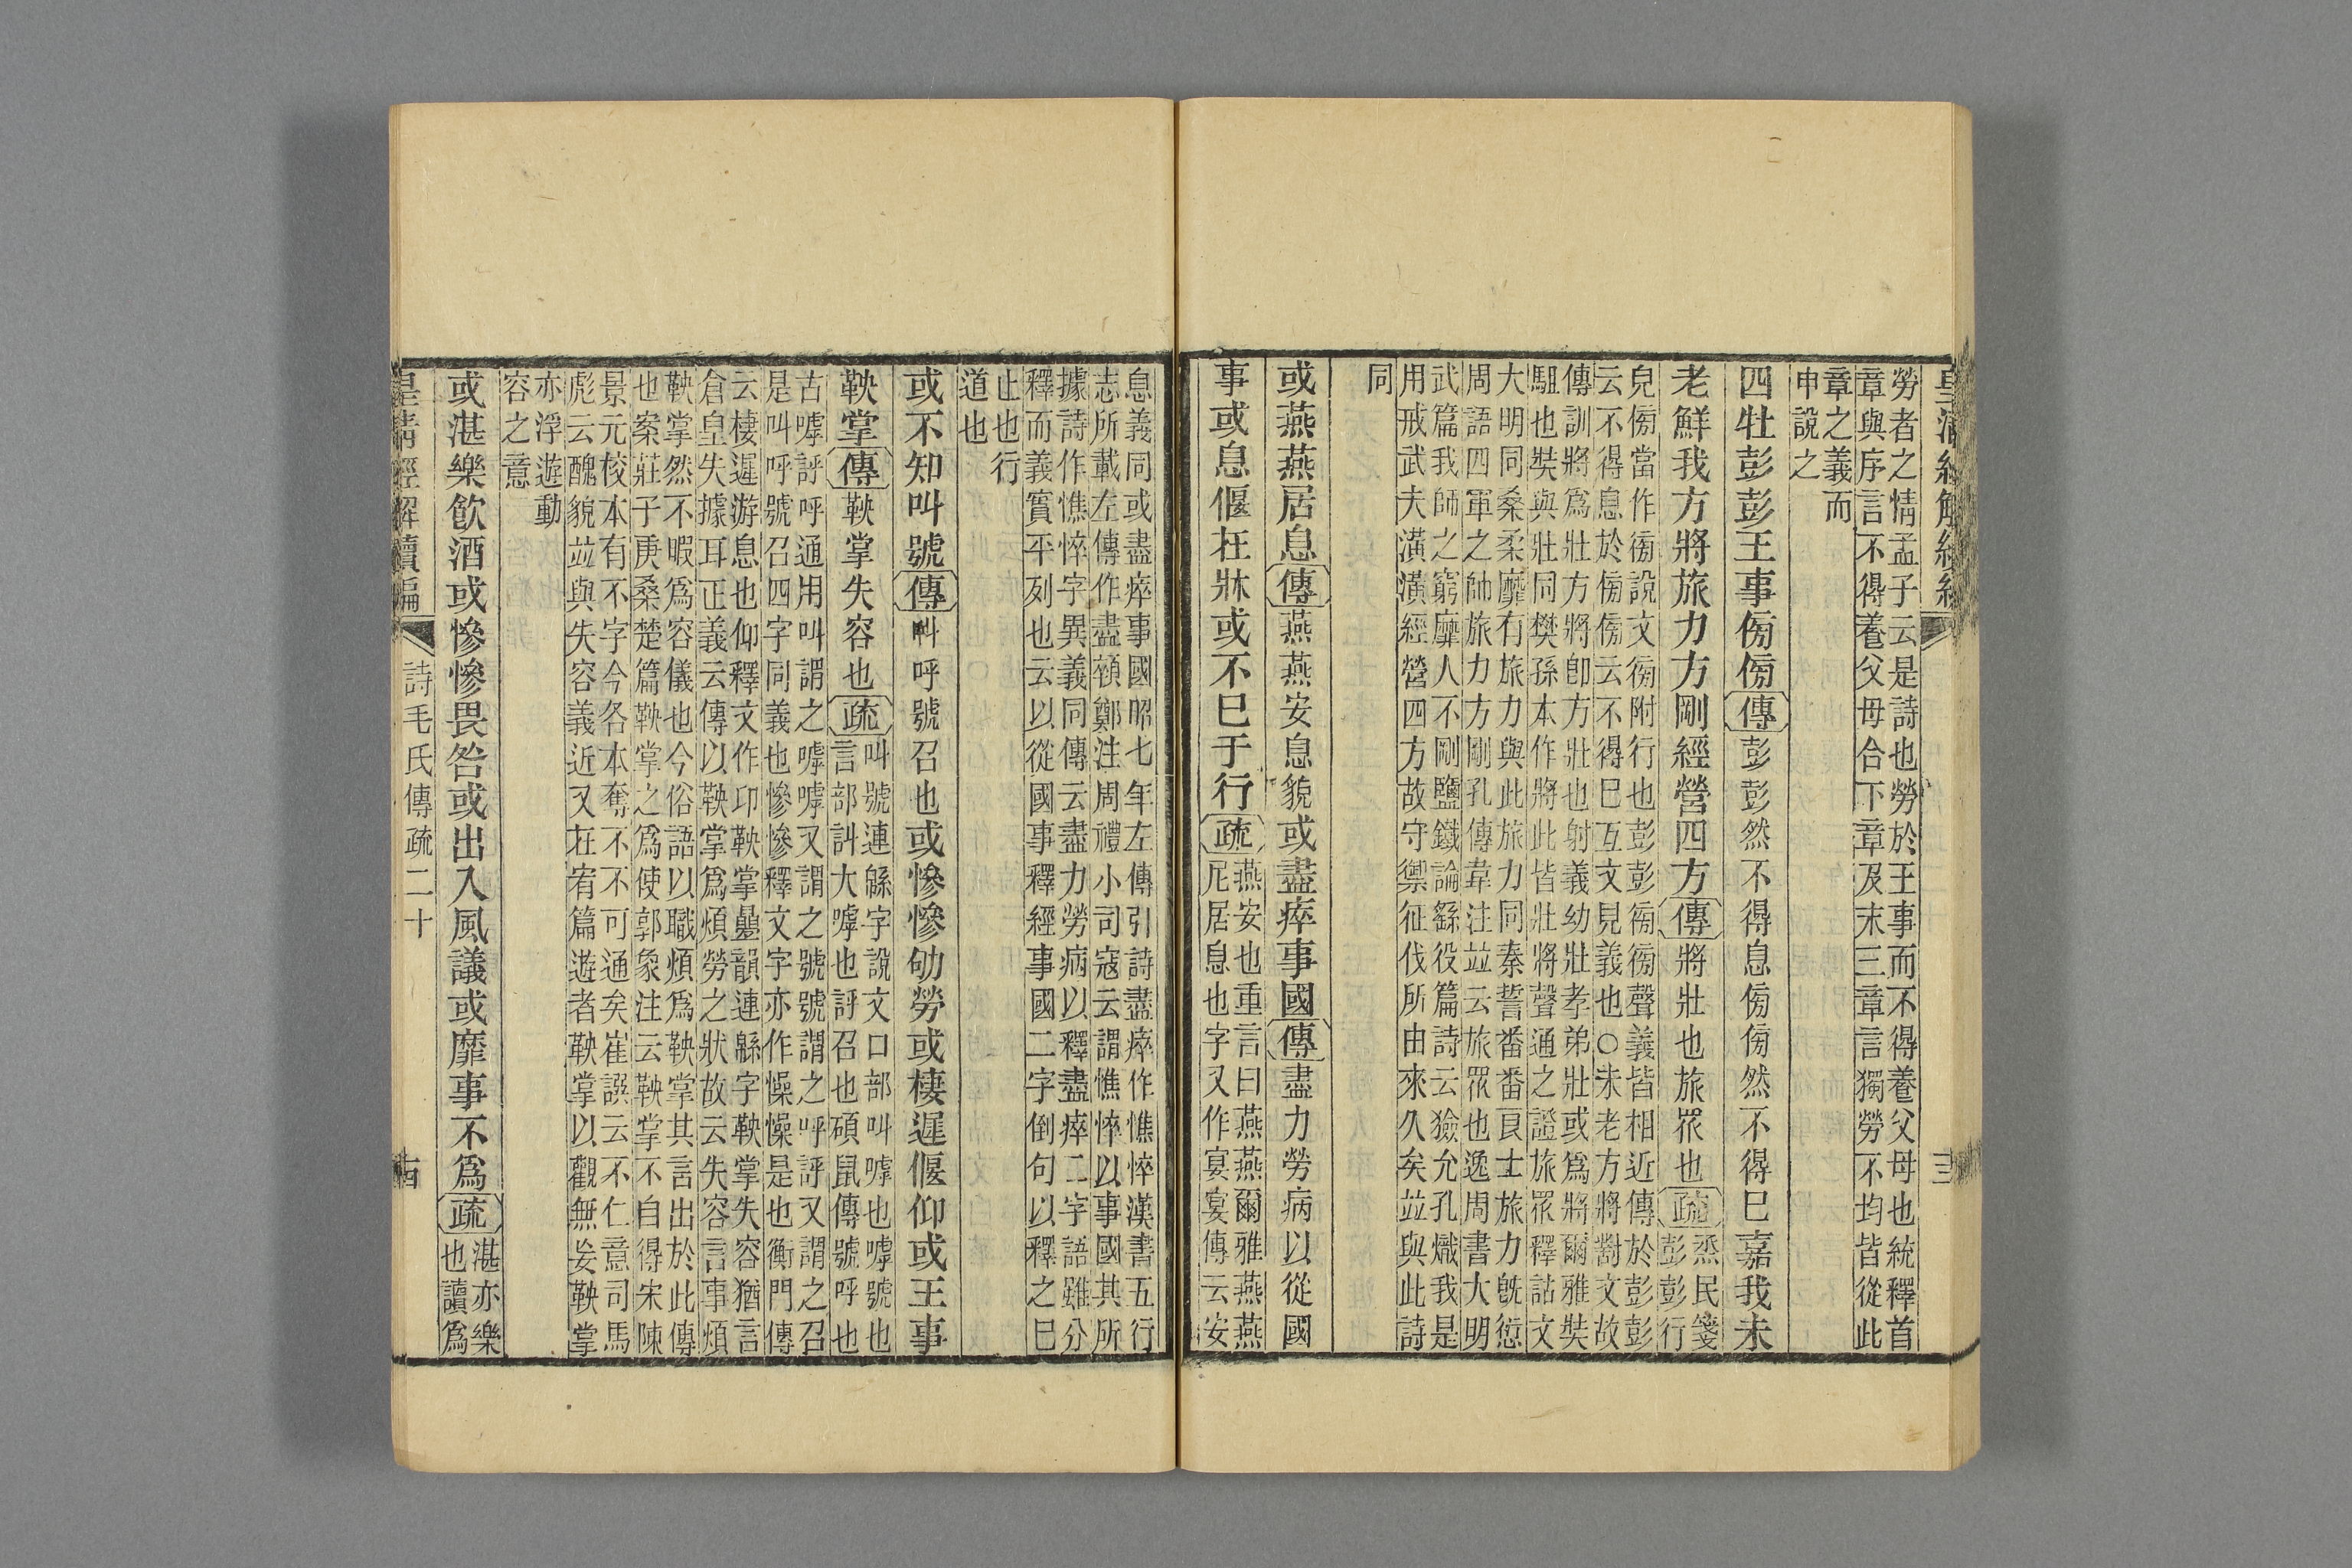 勞者之情孟子云是詩也勞於王事而不得養父母也統釋首
章與序言不得養父母合下章及末三章言獨勞不均皆從此
章之義而
申說之
四牡彭彭王事傍傍傳彭彭然不得息傍傍然不得巳嘉我未
老鮮我方將旅力方剛經營四方傳將壯也旅眾也疏烝民箋
彭彭行
皃傍當作徬說文徬附行也彭彭徬徬聲義皆相近傳於彭彭
云不得息於傍傍云不得巳互文見義也○未老方將對文故
傳訓將爲壯方將卽方壯也射義幼壯孝弟壯或爲將爾雅奘
駔也奘與壯同樊孫本作將此皆壯將聲通之證旅眾釋詁文
大明同桑柔靡有旅力與此旅力同秦誓番番良士旅力旣愆
周語四軍之帥旅力方剛孔傳韋注竝云旅眾也逸周書大明
武篇我師之窮靡人不剛鹽鐵論繇役篇詩云獫允孔熾我是
用戒武夫潢潢經營四方故守禦征伐所由來久矣竝與此詩
同
或燕燕居息傳燕燕安息貌或盡瘁事國傳盡力勞病以從國
事或息偃在牀或不巳于行疏燕安也重言曰燕燕爾雅燕燕
尼居息也字又作宴宴傳云安
息義同或盡瘁事國昭七年左傳引詩盡瘁作憔悴漢書五行
志所載左傳作盡顇鄭注周禮小司寇云謂憔悴以事國其所
據詩作憔悴字異義同傳云盡力勞病以釋盡瘁二字語雖分
釋而義實平列也云以從國事釋經事國二字倒句以釋之巳
止也行
道也
或不知叫號傳叫呼號召也或慘慘劬勞或棲遲偃仰或王事
鞅掌傳鞅掌失容也疏叫號連緜字說文口部叫嘑也嘑號也
言部訆大嘑也評召也碩鼠傳號呼也
古嘑評呼通用叫謂之嘑嘑又謂之號號謂之呼評又謂之召
是叫呼號召四字同義也慘慘釋文字亦作懆懆是也衡門傳
云棲遲游息也仰釋文作卬鞅掌曡韻連緜字鞅掌失容猶言
倉皇失據耳正義云傳以鞅掌爲煩勞之狀故云失容言事煩
鞅掌然不暇爲容儀也今俗語以職煩爲鞅掌其言出於此傳
也案莊子庚桑楚篇鞅掌之爲使郭象注云鞅掌不自得宋陳
景元校本有不字今各本奪不不可通矣崔譔云不仁意司馬
彪云醜貌竝與失容義近又在宥篇遊者鞅掌以觀無妄鞅掌
亦浮遊動
容之意
或湛樂飮酒或慘慘畏咎或出入風議或靡事不爲疏湛亦樂
也讀爲
皇清經解續編
詩毛氏傳疏二十
十四